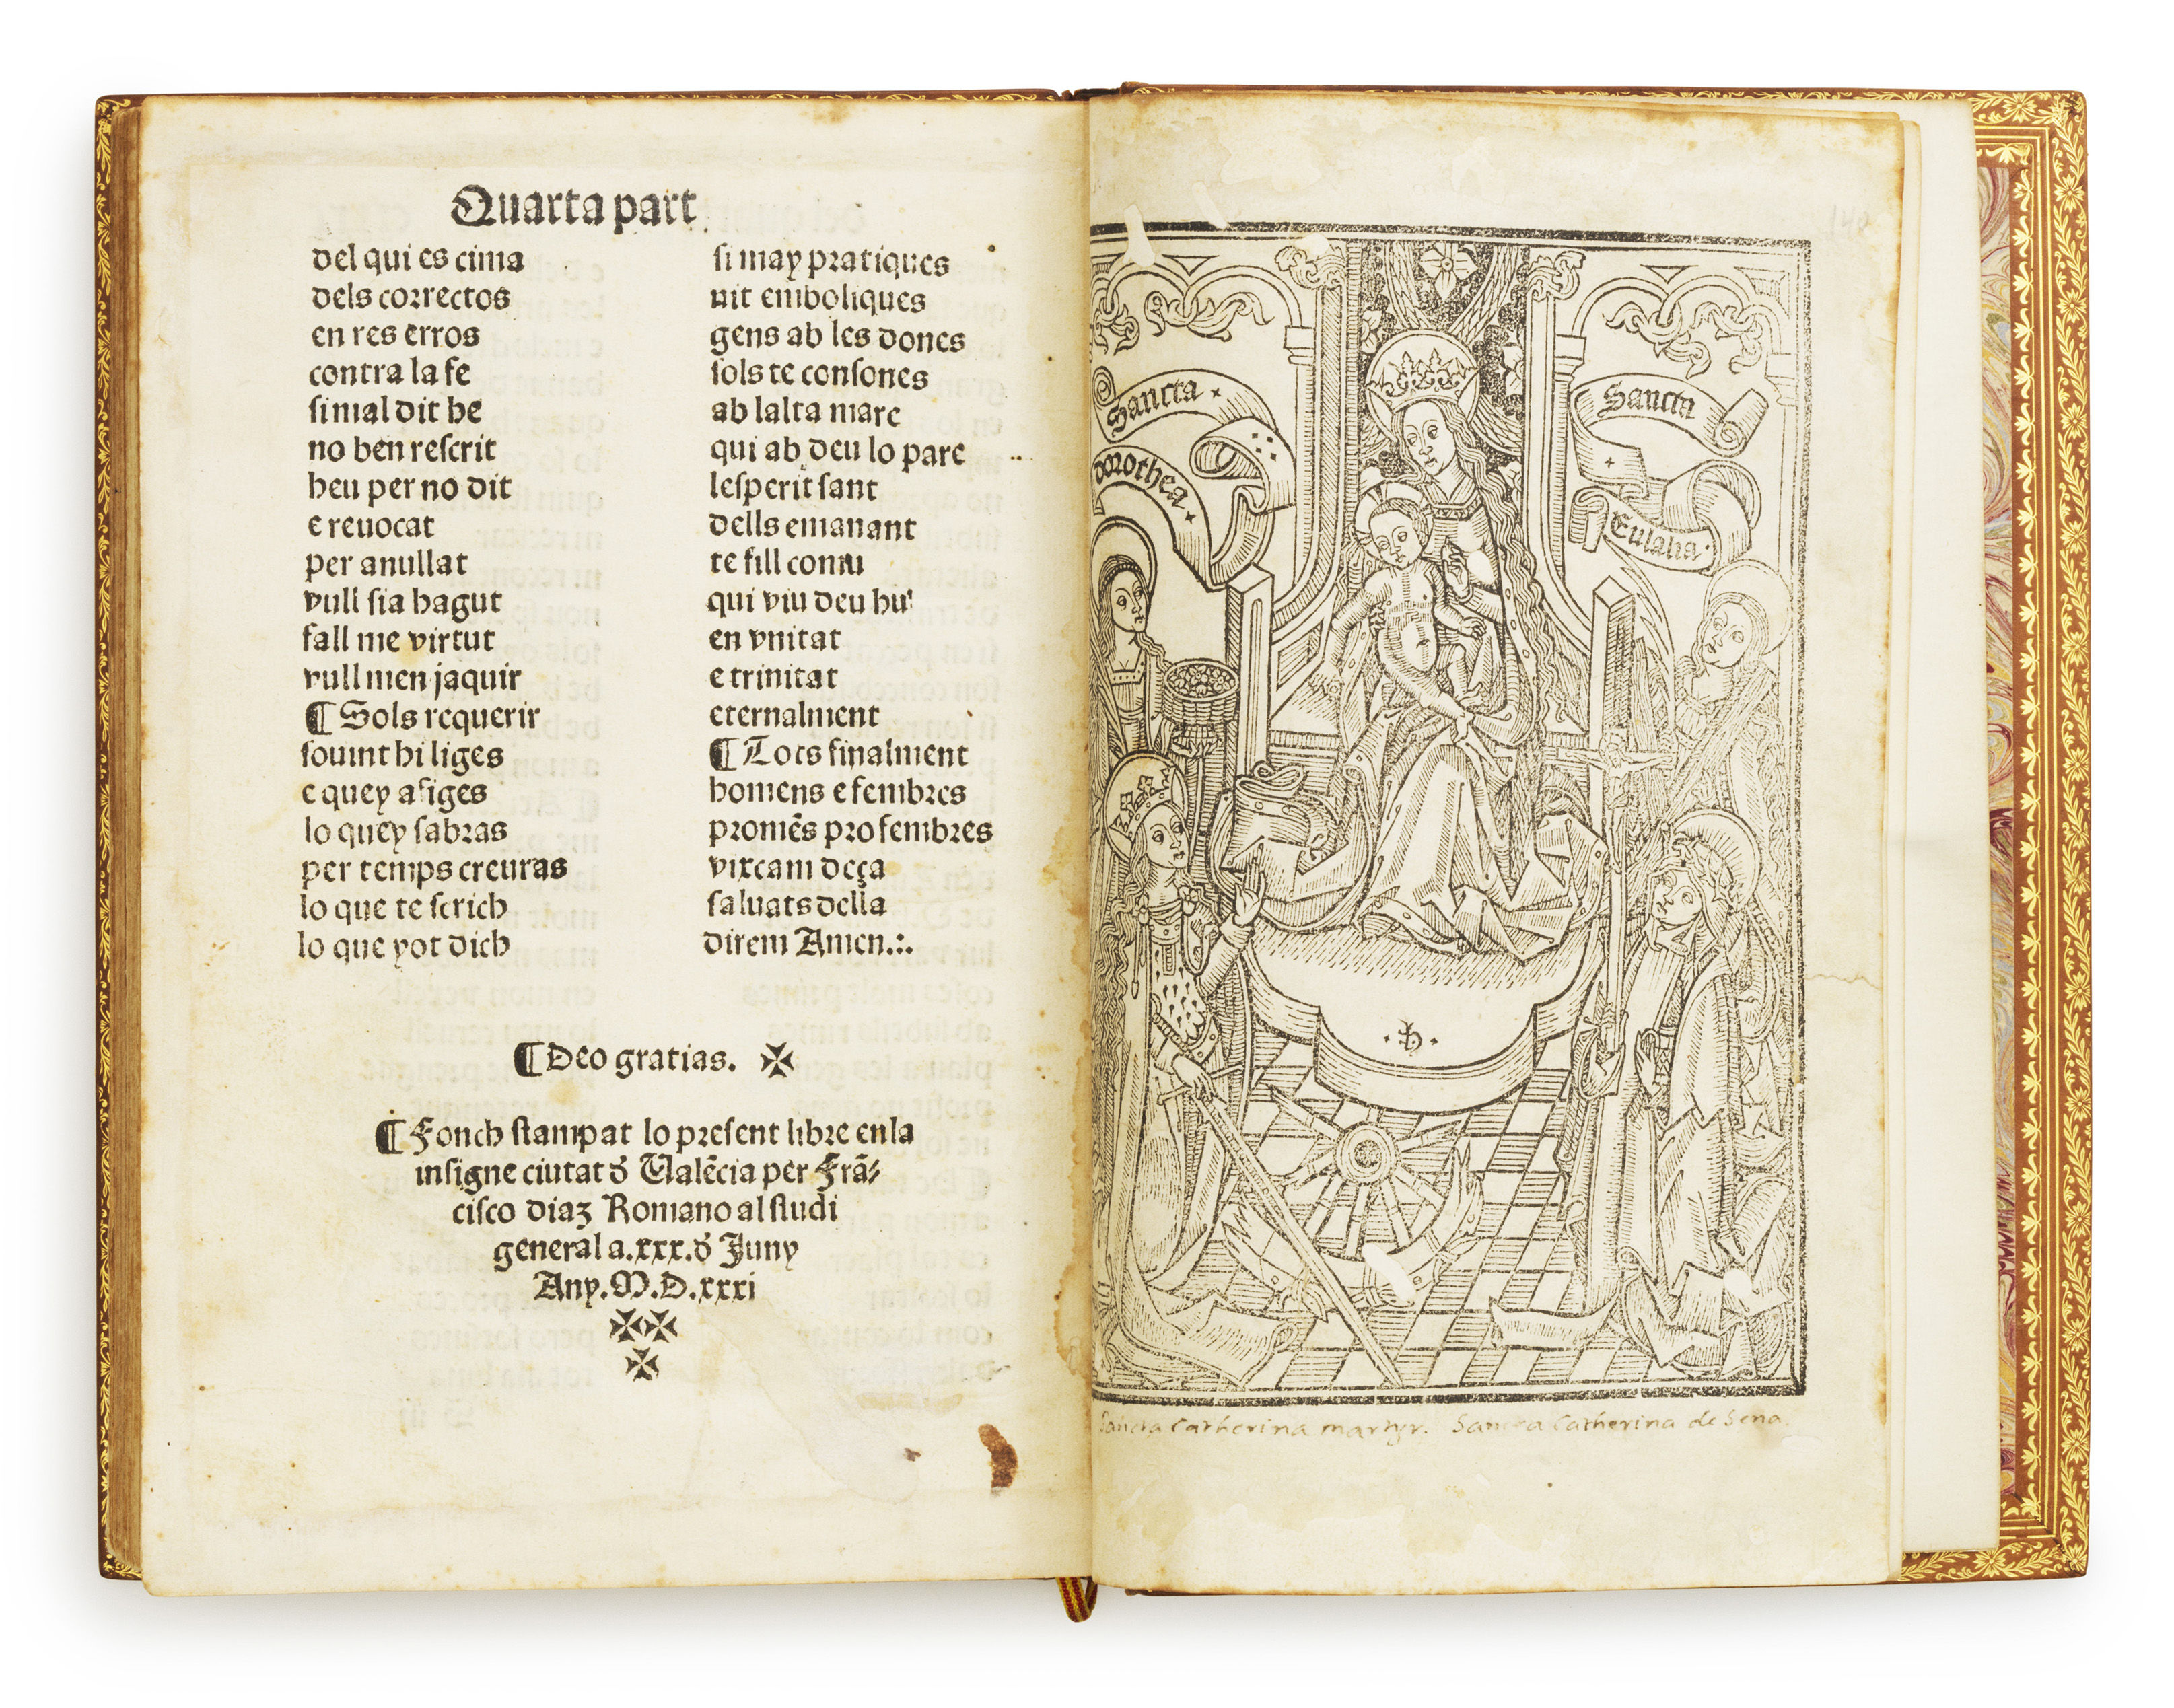 Quarta part
del qui es cima
dels correctos
en res erros
contra la fe
si mal dit he
no ben rescrit
heu per no dit
e reuocat
per anullat
vull sia hagut
fall me virtut
vull men jaquir
¶ Sols requerir
souint hi liges
e quey afiges
lo quey sabras
per temps creuras
lo que te scrich
lo que yot dich
si may pratiques
nit emboliques
gens ab les dones
sols te consones
ab lalta mare
qui ab deu lo pare
lesperit sant
dells emanant
te fill comu
qui viu deu hu
en vnitat
e trinitat
eternalment
¶ Tots finalment
homens e fembres
promēs pro sembres
vixcam deça
saluats della
direm Amen.:.
¶ Deo gratias. ✠
¶ Fonch stampat lo present libre enla
insigne ciutat d̄ Ualēcia per Frā⸗
cisco diaz Romano al studi
general a.xxx.d̄ Juny
Any.M.D.xxxi
✠✠
✠
140
Sancta
dorothea
Sancta
Eulalia
Sancta Catherina martyr. Sancta Catherina de Sena.